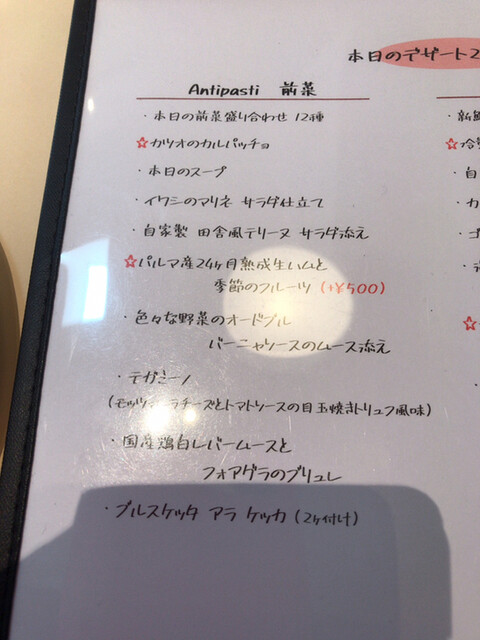 本日のデザート2
Antipasti 前菜
・本日の前菜盛り合わせ 12種
☆カツオのカルパッチョ
・本日のスープ
・イワシのマリネ サラダ仕立て
・自家製 田舎風テリーヌ サラダ添え
☆パルマ産24ヶ月熟成生ハムと
季節のフルーツ (+¥500)
・色々な野菜のオードブル
バーニャソースのムース添え
・テガミーノ
(モッツァレラチーズとトマトソースの目玉焼きトリュフ風味)
・国産鶏白レバームースと
フォアグラのブリュレ
・ブルスケッタ アラ ケッカ (2ヶ付け)
・新鮮
☆冷製
・自
・カ